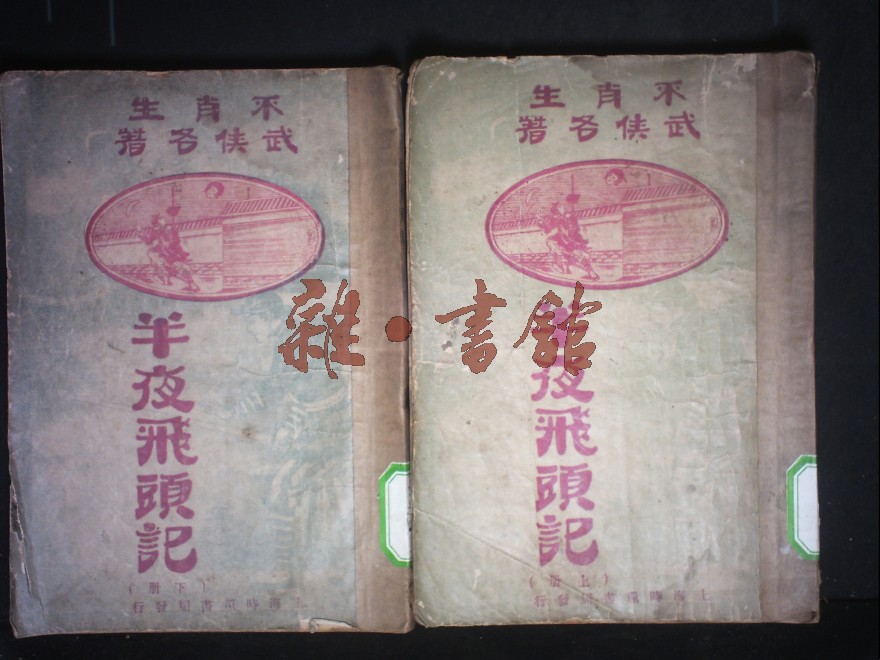 不肖生
武俠名著
半夜飛頭記
(上冊)
上海時還書局發行
不肖生
武俠名著
半夜飛頭記
(下冊)
上海時還書局發行
雜·書館